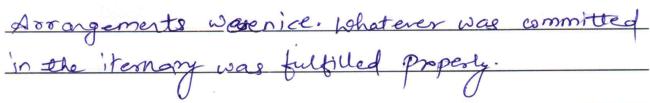 Arrangements were nice. Whatever was committed
in the iternary was fulfilled properly.